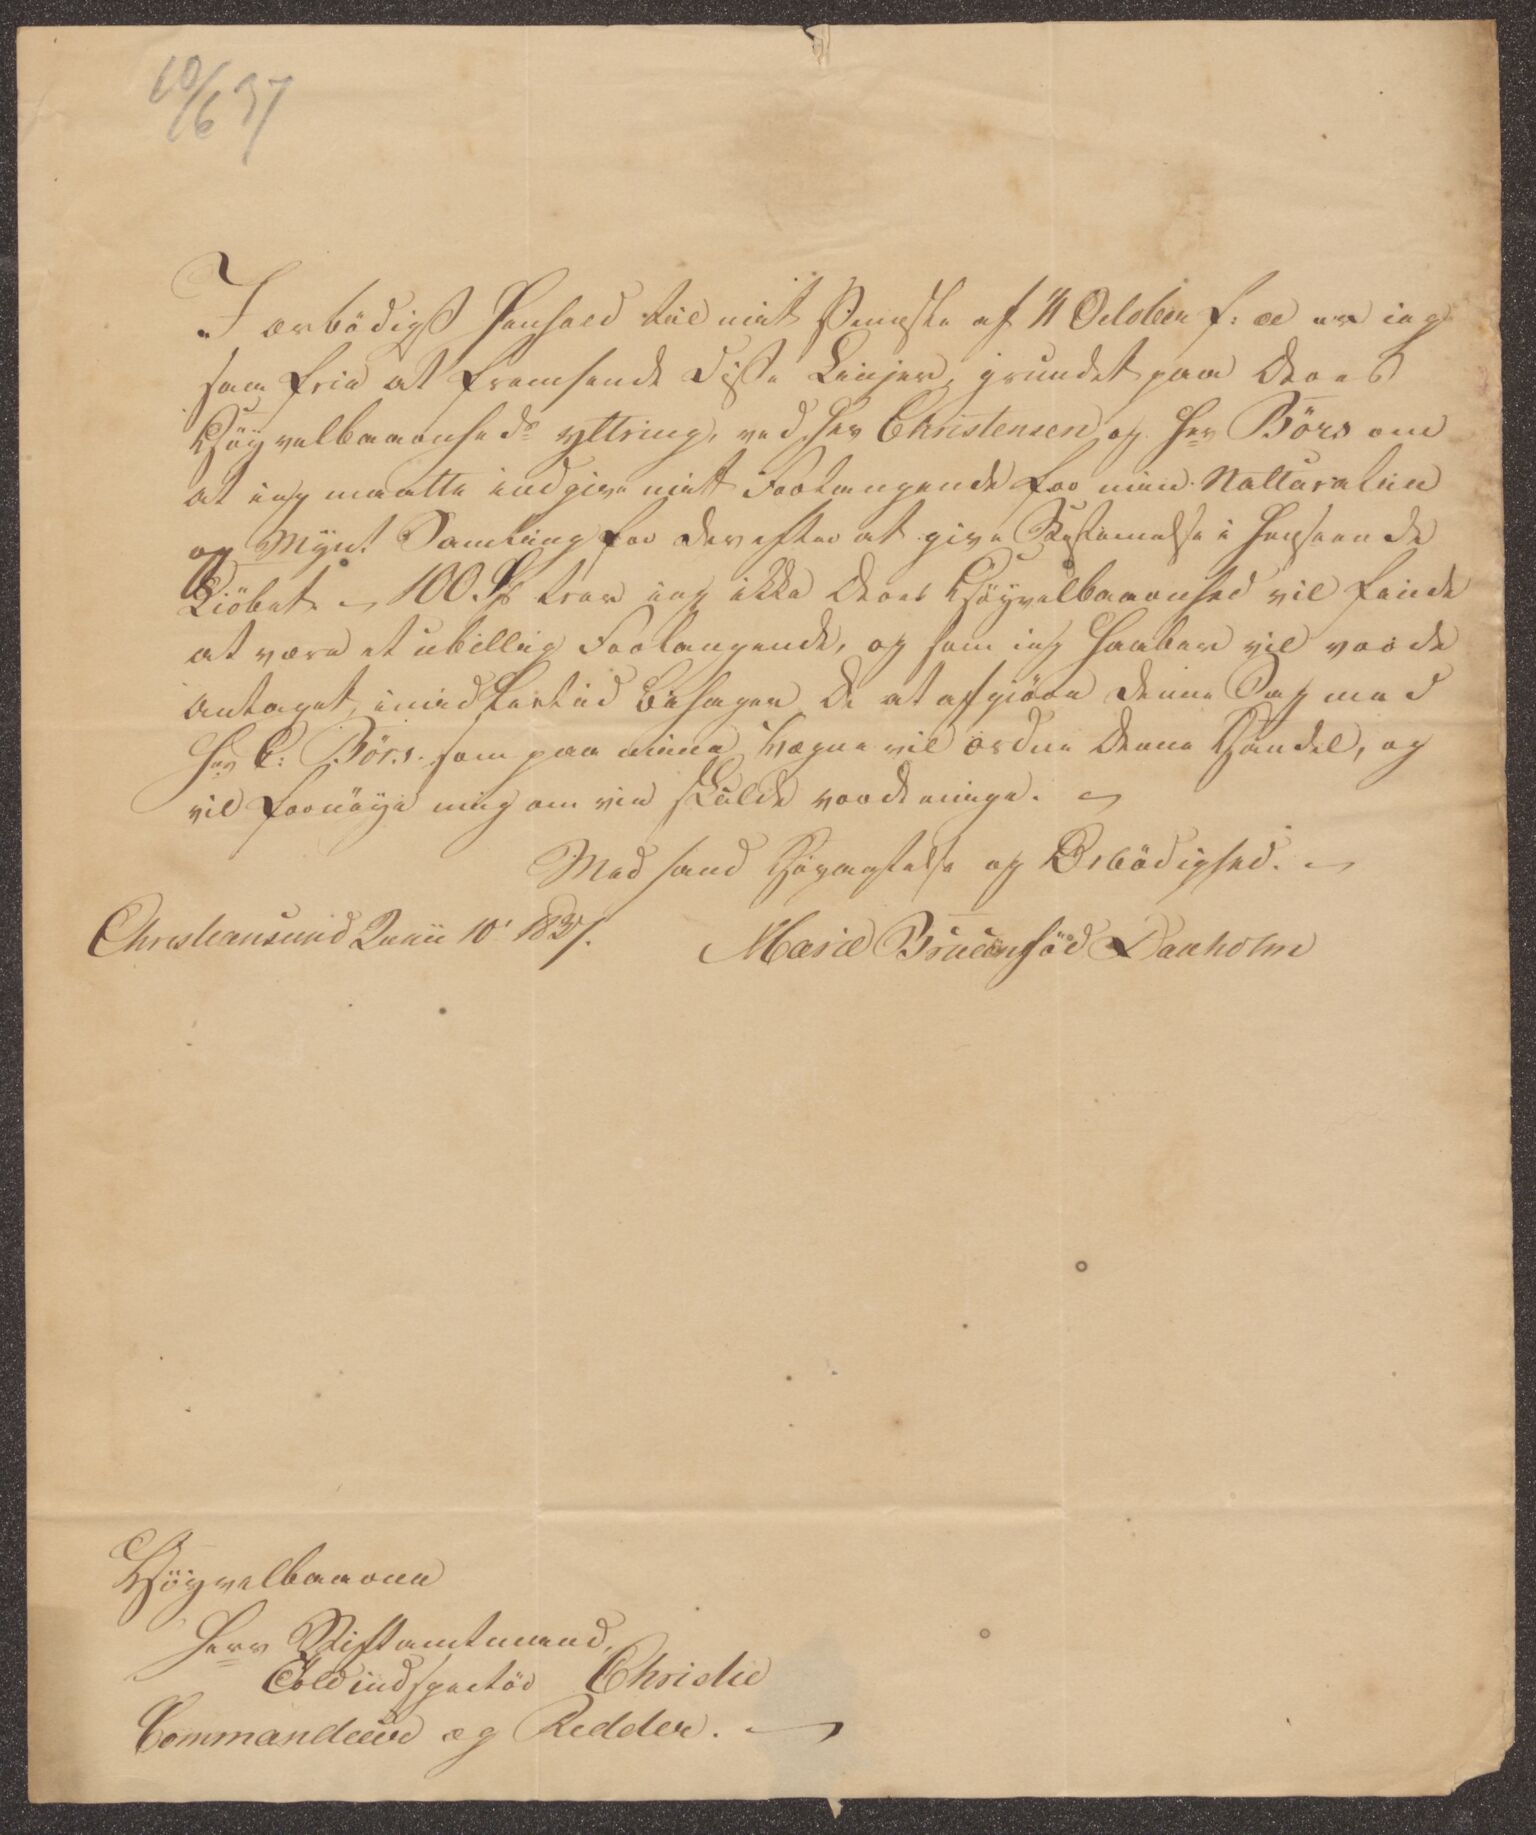 10/6 37
I ærbödigst Henhold til mit Seneste af 11 October f: a: er ieg
saa frie at fremsende disse Linjer, grundet paa Deres
Höÿvelbaarenheds yttring, ved Herr Christensen og Herr Börs om
at ieg maatte indgive mitt Forlangende for min Natturalie
og Mÿnt Samling for derefter at give Bestemelse i Henseende
Kiöbet. 100 Sp troer ieg ikke Deres Höÿvelbaarenhed vil finde
at være et ubillig Forlangende, og som ieg haaber vil vorde
antaget, imidlertid behager De at afgiöre denne Sag med
Herr C: Börs. som paa mine Vægne vil ordne denne Handel, og
vil fornöÿe mig om vie skulde vorde eenige.
Med sand Höyagtelse og Ærbödighed.
Christiansund Junii 10' 1837.
Maria Bruun föd Daaholm
Höÿvelbaarne
Herr Stiftamtmand,
Toldindspectör Christie
Commandeur og Redder.